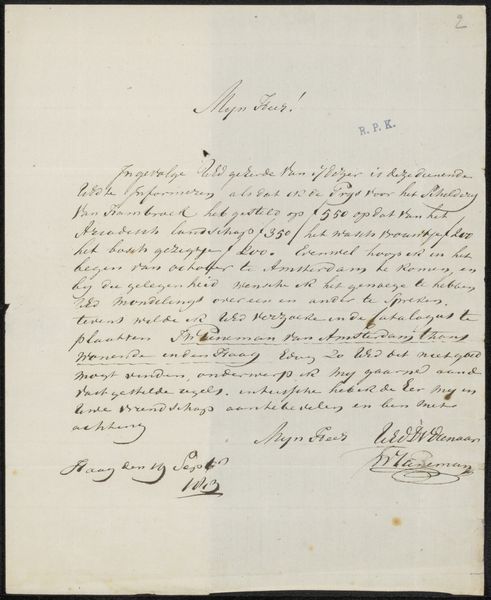 2
Mijn Heer!
R.P.K.
Ingevolge UEd geëerde van 7 dezer is deze dienende
UEd te Informeren als dat ik de Prijs voor het Schilderij
van Hambroek heb gesteld op f 550 op dat van het
Arcadisch landschap f 350/ het wasch vrouwtje f 200
het bosch gezigtje f 200. Evenwel hoop ik in het
begin van october te Amsterdam te komen, en
bij die gelegenheid wensche ik het genoege te hebben
UEd mondelings over een en ander te Spreken,
tevens wilde ik UEd verzoeke in de Catalogus te
plaatsen Pieneman van Amsterdam thans
wonende in den Haag Edog zo UEd dit niet goed
mogt vinden, onderwerp ik mij gaarne aan de
vastgestelde regels. intusschen heb ik de Eer mij in
Uwe vriendschap aantebevelen en ben met
achting
Mijn Heer UEd Dienaar
Pieneman
Haag den 19 Sept